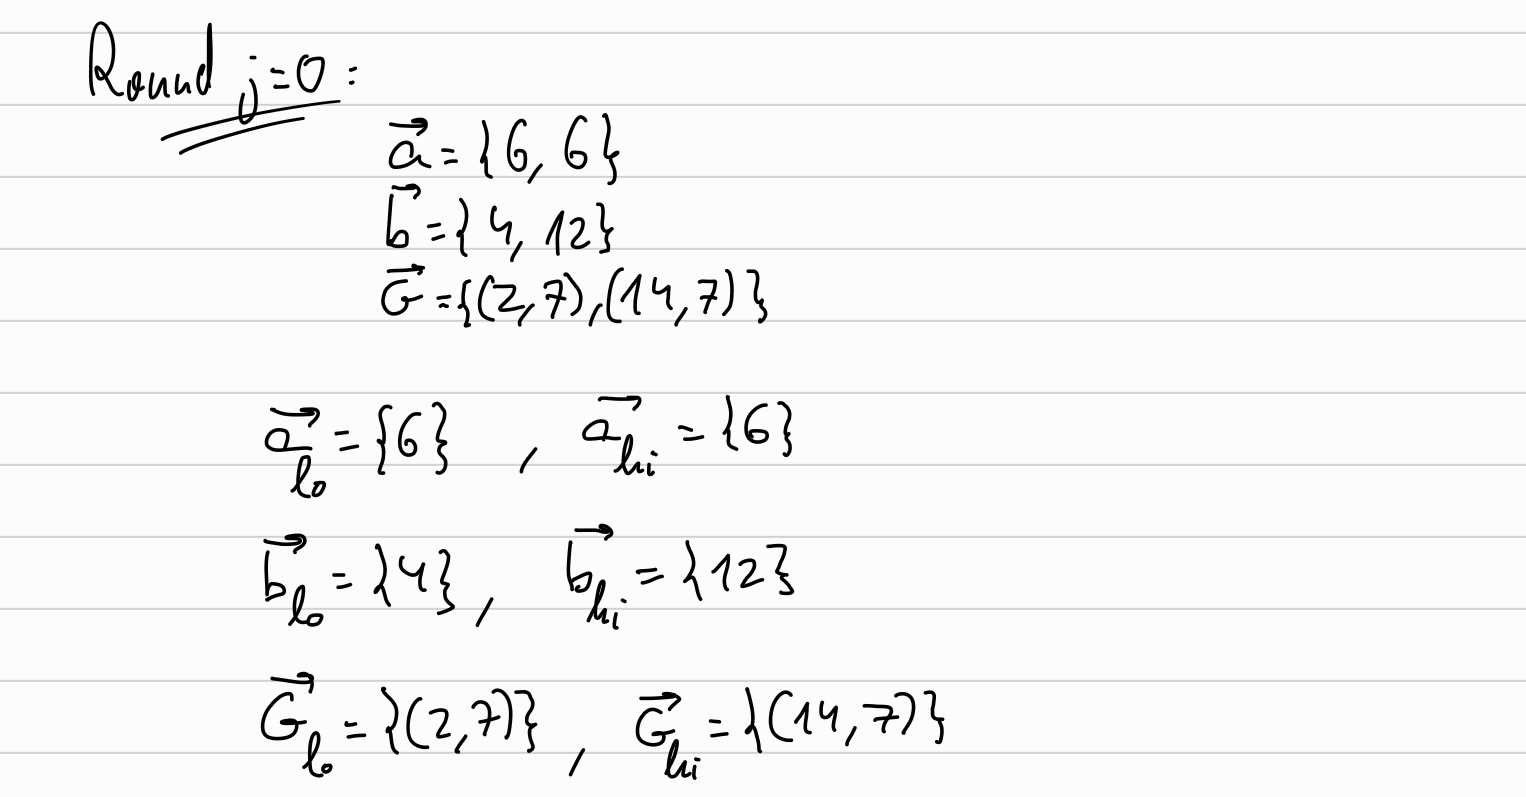 Round j=0:
a⃗ = {6, 6}
b⃗ = {4, 12}
G⃗ = {(2,7),(14,7)}
a⃗_lo = {6} , a⃗_hi = {6}
b⃗_lo = {4} , b⃗_hi = {12}
G⃗_lo = {(2,7)} , G⃗_hi = {(14,7)}